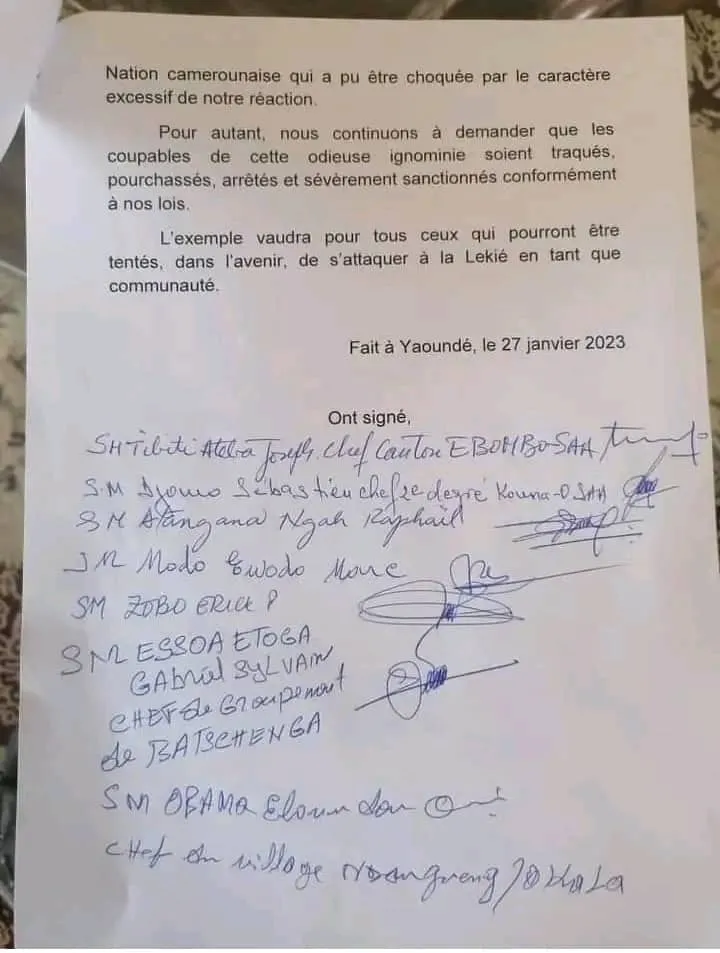 Nation camerounaise qui a pu être choquée par le caractère
excessif de notre réaction.
Pour autant, nous continuons à demander que les
coupables de cette odieuse ignominie soient traqués,
pourchassés, arrêtés et sévèrement sanctionnés conformément
à nos lois.
L'exemple vaudra pour tous ceux qui pourront être
tentés, dans l'avenir, de s'attaquer à la Lekié en tant que
communauté.
Fait à Yaoundé, le 27 janvier 2023
Ont signé,
Joseph. Chef Canton EBOMBOSAA
S.M Sébastien chef 2e degré Kouna-O SAA
SM Atangana Ngah Raphaël
SM Modo Ewodo
SM ZOBO ERICK P
SM ESSOA ETOGA
GAbriel SYLVAIN
CHEF de Groupement
de BATSCHENGA
SM OBAMA
CHef du village